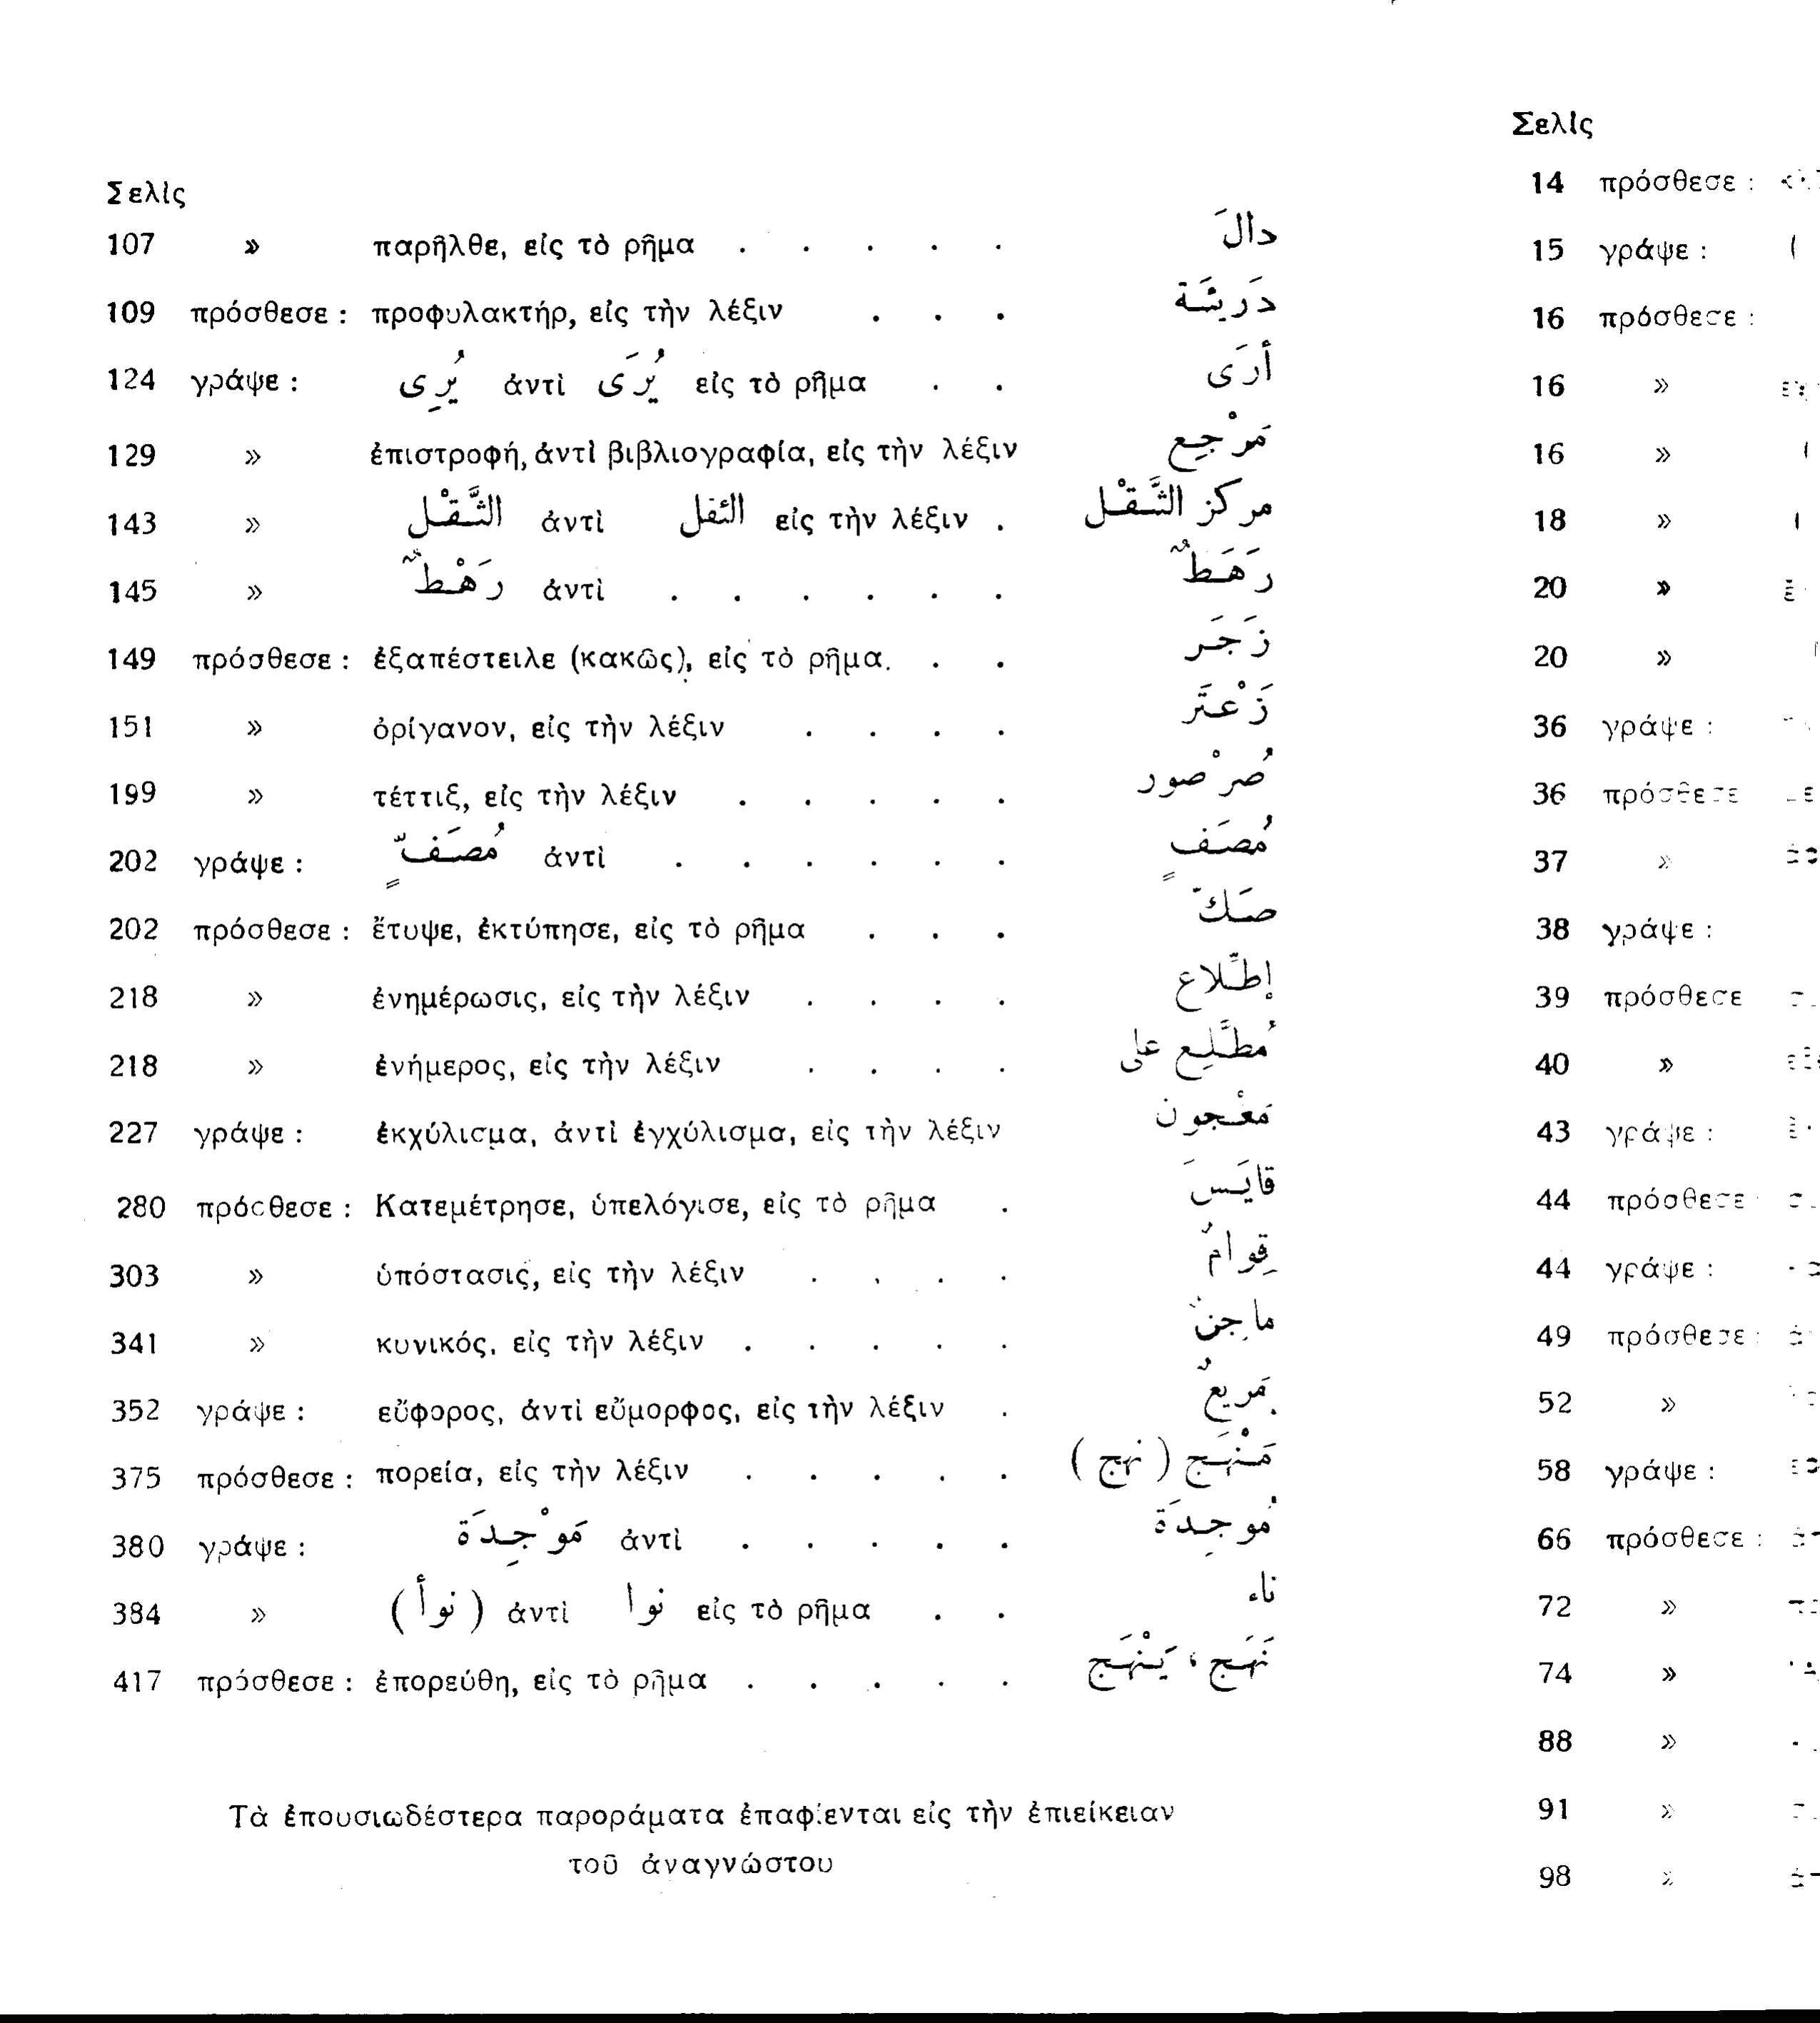 Σελὶς
107 » παρῆλθε, εἰς τὸ ρῆμα . . . . . دالَ
109 πρόσθεσε : προφυλακτήρ, εἰς τὴν λέξιν . . . دَريشَة
124 γράψε : يُرِى ἀντὶ يُرَى εἰς τὸ ρῆμα . . أرَى
129 » ἐπιστροφή, ἀντὶ βιβλιογραφία, εἰς τὴν λέξιν مَرْجِع
143 » الثَّقْل ἀντὶ الثقل εἰς τὴν λέξιν . مركز الثَّقْل
145 » رَهْطٌ ἀντὶ . . . . . . رَهَطٌ
149 πρόσθεσε : ἐξαπέστειλε (κακῶς), εἰς τὸ ρῆμα. . . زَجَر
151 » ὀρίγανον, εἰς τὴν λέξιν . . . . زَعْتَر
199 » τέττιξ, εἰς τὴν λέξιν . . . . . صُرْصور
202 γράψε : مُصَفٍّ ἀντὶ . . . . . . مُصَفٍ
202 πρόσθεσε : ἔτυψε, ἐκτύπησε, εἰς τὸ ρῆμα . . . صَكّ
218 » ἐνημέρωσις, εἰς τὴν λέξιν . . . . إطّلاع
218 » ἐνήμερος, εἰς τὴν λέξιν . . . . مُطَّلِع على
227 γράψε : ἐκχύλισμα, ἀντὶ ἐγχύλισμα, εἰς τὴν λέξιν مَعْجون
280 πρόσθεσε : Κατεμέτρησε, ὑπελόγισε, εἰς τὸ ρῆμα . قايَسَ
303 » ὑπόστασις, εἰς τὴν λέξιν . . . . قِوامٌ
341 » κυνικός, εἰς τὴν λέξιν . . . . . ماجِنٌ
352 γράψε : εὔφορος, ἀντὶ εὔμορφος, εἰς τὴν λέξιν . مَريعٌ
375 πρόσθεσε : πορεία, εἰς τὴν λέξιν . . . . . مَنْهَج ( نهج )
380 γράψε : مَوْجِدَة ἀντὶ . . . . . مُوجِدَة
384 » ( نوأ ) ἀντὶ نوا εἰς τὸ ρῆμα . . ناء
417 πρόσθεσε : ἐπορεύθη, εἰς τὸ ρῆμα . . . . . نَهَج ، يَنْهَج
Τὰ ἐπουσιωδέστερα παροράματα ἐπαφίενται εἰς τὴν ἐπιείκειαν
τοῦ ἀναγνώστου
Σελὶς
14 πρόσθεσε :
15 γράψε :
16 πρόσθεσε :
16 »
16 »
18 »
20 »
20 »
36 γράψε :
36 πρόσθεσε
37 »
38 γράψε :
39 πρόσθεσε
40 »
43 γράψε :
44 πρόσθεσε
44 γράψε :
49 πρόσθεσε :
52 »
58 γράψε :
66 πρόσθεσε :
72 »
74 »
88 »
91 »
98 »